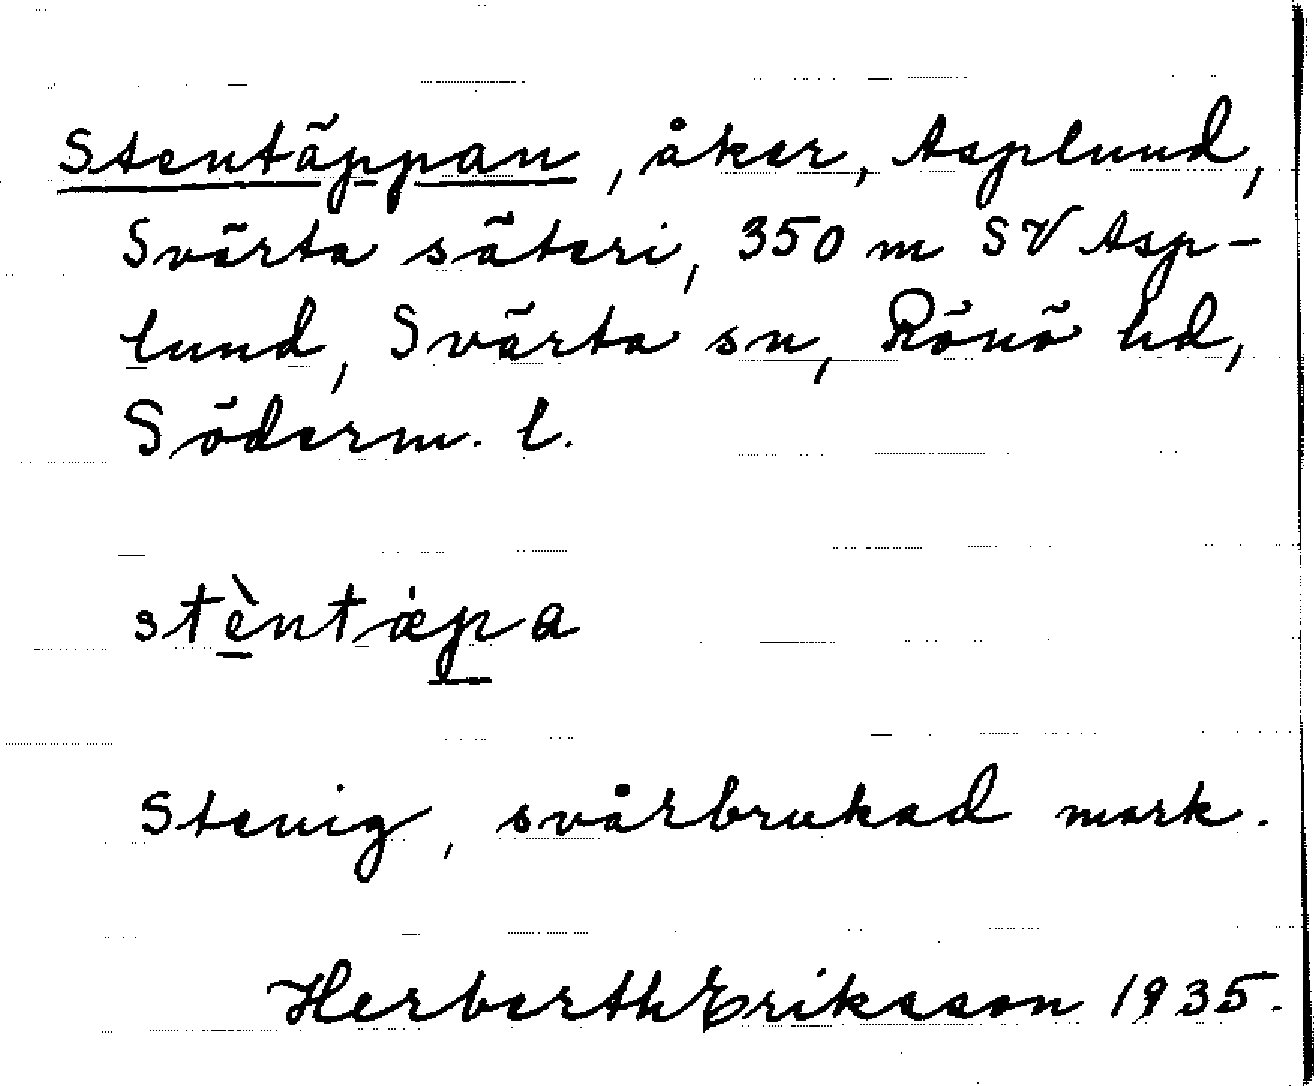 Stentäppan, åker, Asplund,
Svärta säteri, 350 m SV Asp-
lund, Svärta sn, Rönö hd,
Söderm. l.
stèntæpa
Stenig, svårbrukad mark.
Herberth Eriksson 1935.